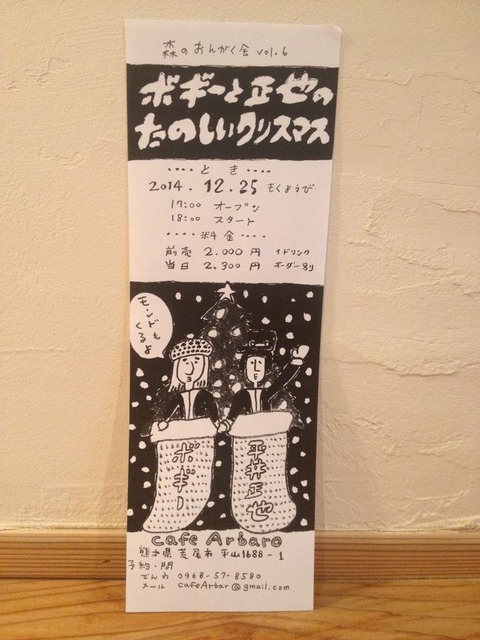 森のおんがく会 vol.6
ボギーと正也の
たのしいクリスマス
・・・・とき・・・・
2014.12.25 もくようび
17:00 オープン
18:00 スタート
・・・・料金・・・・
前売 2.000円 1ドリンク
当日 2.300円 オーダー別
モンドも
くるよ
ボギー
平井正也
cafe Arbaro
熊本県 荒尾市 平山1688-1
予約・問
でんわ 0968-57-8580
メール cafeArbar@gmail.com